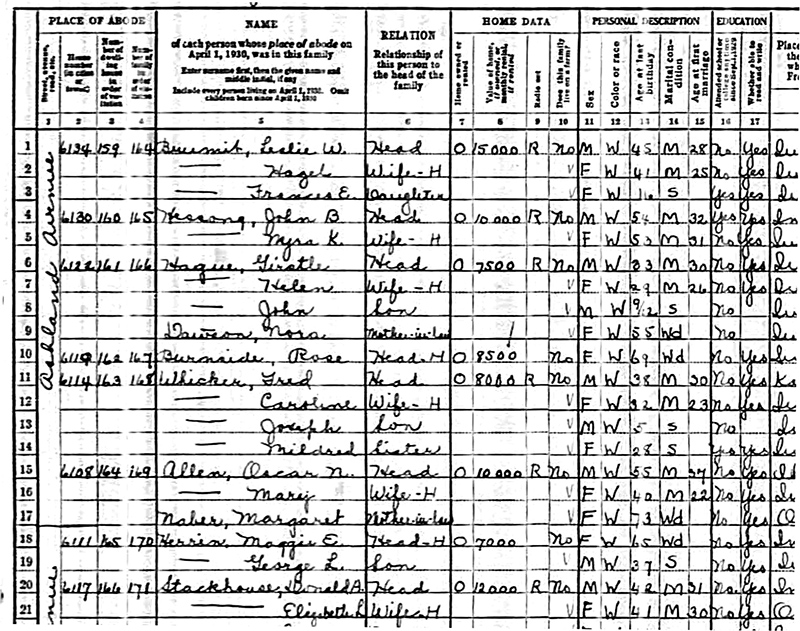 PLACE OF ABODE NAME RELATION HOME DATA PERSONAL DESCRIPTION EDUCATION
of each person whose place of abode on April 1, 1930, was in this family
Enter surname first, then the given name and middle initial, if any
Include every person living on April 1, 1930. Omit children born since April 1, 1930
Relationship of this person to the head of the family
Home owned or rented
Value of home, if owned, or monthly rental, if rented
Radio set
Does this family live on a farm?
Sex
Color or race
Age at last birthday
Marital condition
Age at first marriage
Attended school or college any time since Sept. 1, 1929
Whether able to read and write
1 2 3 4 5 6 7 8 9 10 11 12 13 14 15 16 17
Ashland Avenue
1 6134 159 164 Leslie W. Head O 15000 R No M W 45 M 28 No Yes
2 Hazel Wife-H V F W 41 M 25 No Yes
3 Frances E. Daughter V F W 16 S Yes Yes
4 6130 160 165 Hessong, John B. Head O 10000 R No M W 54 M 32 Yes Yes
5 Myra K. Wife-H V F W 53 M 31 No Yes
6 6122 161 166 Hague, Head O 7500 R No M W 33 M 30 No Yes
7 Helen Wife-H V F W 29 M 26 No Yes
8 John Son V M W 9/12 S No
9 Dawson, Nora Mother-in-law V F W 55 Wd No
10 162 167 Burnside, Rose Head-H O 8500 No F W 69 Wd No Yes
11 6114 163 168 Whicker, Fred Head O 8000 R No M W 38 M 30 No Yes
12 Caroline Wife-H V F W 32 M 23 No Yes
13 Joseph Son V M W 5 S No
14 Mildred Sister V F W 28 S Yes Yes
15 6108 164 169 Allen, Oscar N. Head O 10000 R No M W 55 M 37 No Yes
16 Mary Wife-H V F W 40 M 22 No Yes
17 Naber, Margaret Mother-in-law V F W 73 Wd No Yes
18 6111 165 170 Herrin, Maggie E. Head-H O 7000 No F W 65 Wd No Yes
19 George L. Son V M W 37 S No Yes
20 6117 166 171 Stackhouse, Donald A. Head O 12000 R No M W 42 M 31 No Yes
21 Elizabeth L Wife-H V F W 41 M 30 No Yes